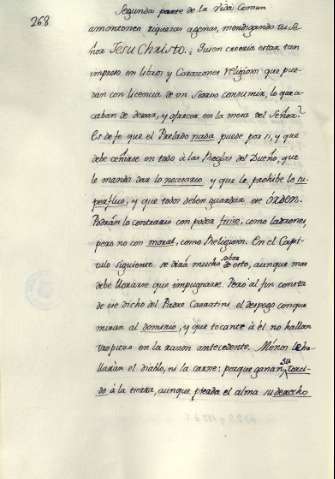 268
Segunda parte de la Vida Comun
amontonen riquezas agenas, mendigando tu Se
ñor Jesu Christo. ¿Quien creeria estar tan
impreso en libros y Corazones religiosos que pue
dan con licencia de un Siervo consumir, lo que a
caban de dexar, y ofrecer en la mesa del Señor?
Es de fe que el Prelado nada puede por si, y que
debe ceñirse en todo á las Reglas del Dueño, que
le manda dar lo necesario y que le prohibe lo su
perfluo; y que todos deben guardar ese órden.
Podrán lo contrario con poder físico, como ladrones,
pero no con moral, como Religiosos. En el Capi
tulo siguiente se dirá mucho sobre esto, aunque mas
debe llorarse que impugnarse. Pero al fin consta
de ese dicho del Padre Carratini el despego con que
miran al dominio, y que tocante á él no hallan
tropiezo en la razon antecedente. Ménos le ha
llarán el diablo, ni la carne: porque ganan su
á la tierra, aunque pierda el alma su derecho